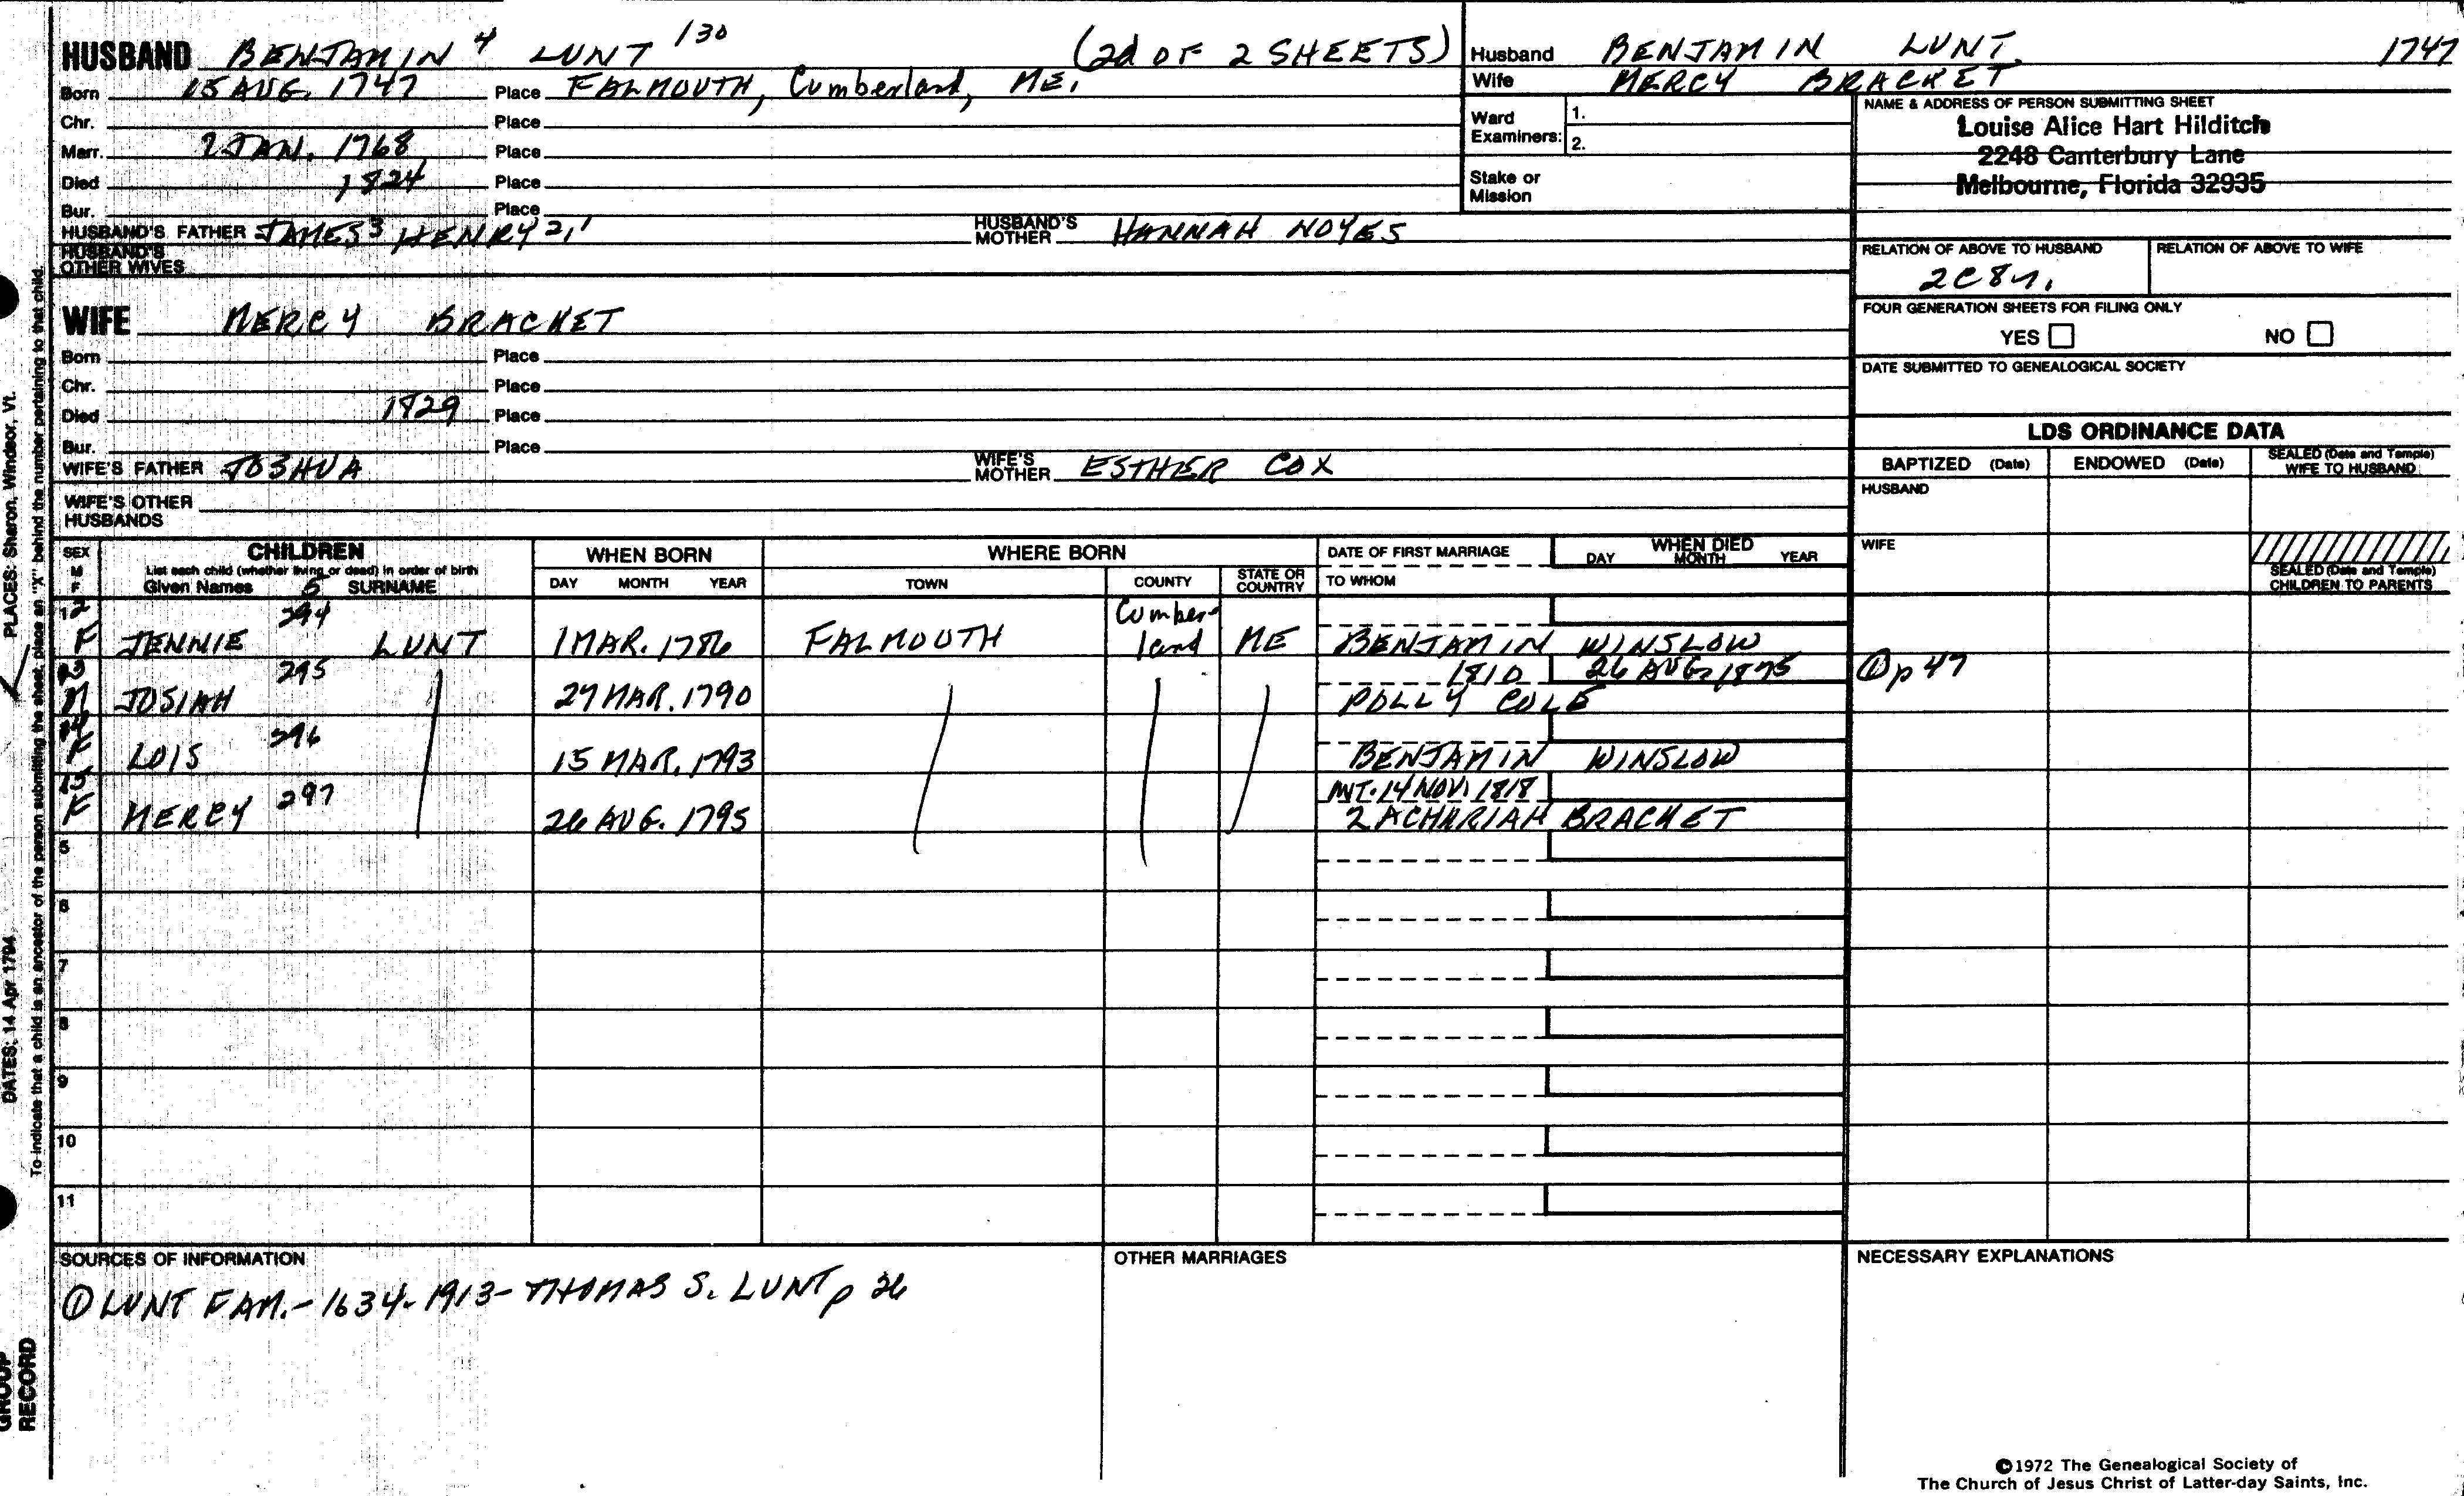 HUSBAND BENJAMIN 4 LUNT 130 (2d OF 2 SHEETS)
Born 15 AUG. 1747 Place FALMOUTH, Cumberland, ME.
Chr. Place
Marr. 2 JAN. 1768 Place
Died 1824 Place
Bur. Place
HUSBAND'S FATHER JAMES 3 HENRY 2,1 HUSBAND'S MOTHER HANNAH NOYES
HUSBAND'S OTHER WIVES
WIFE MERCY BRACKET
Born Place
Chr. Place
Died 1829 Place
Bur. Place
WIFE'S FATHER JOSHUA WIFE'S MOTHER ESTHER COX
WIFE'S OTHER HUSBANDS
Husband BENJAMIN LUNT 1747
Wife MERCY BRACKET
Ward Examiners: 1.
2.
Stake or Mission
NAME & ADDRESS OF PERSON SUBMITTING SHEET
Louise Alice Hart Hilditch
2248 Canterbury Lane
Melbourne, Florida 32935
RELATION OF ABOVE TO HUSBAND RELATION OF ABOVE TO WIFE
2C8r.
FOUR GENERATION SHEETS FOR FILING ONLY
YES NO
DATE SUBMITTED TO GENEALOGICAL SOCIETY
LDS ORDINANCE DATA
BAPTIZED (Date) ENDOWED (Date) SEALED (Date and Temple) WIFE TO HUSBAND
HUSBAND
WIFE
SEALED (Date and Temple) CHILDREN TO PARENTS
SEX M F CHILDREN WHEN BORN WHERE BORN DATE OF FIRST MARRIAGE WHEN DIED
List each child (whether living or dead) in order of birth DAY MONTH YEAR
Given Names 5 SURNAME DAY MONTH YEAR TOWN COUNTY STATE OR COUNTRY TO WHOM
12 294
F JENNIE LUNT 1 MAR. 1786 FALMOUTH Cumberland ME BENJAMIN WINSLOW
13 295 1810 26 AUG. 1875 ① p 47
M JOSIAH 27 MAR. 1790 POLLY COLE
14 296
F LOIS 15 MAR. 1793 BENJAMIN WINSLOW
15 297 INT. 14 NOV. 1818
F MERCY 26 AUG. 1795 ZACHARIAH BRACKET
5
6
7
8
9
10
11
SOURCES OF INFORMATION OTHER MARRIAGES NECESSARY EXPLANATIONS
① LUNT FAM. - 1634-1913 - THOMAS S. LUNT p 26
©1972 The Genealogical Society of
The Church of Jesus Christ of Latter-day Saints, Inc.
PLACES: Sharon, Windsor, Vt.
DATES: 14 Apr 1794
To indicate that a child is an ancestor of the person submitting the sheet, place an "X" behind the number pertaining to that child.
GROUP
RECORD